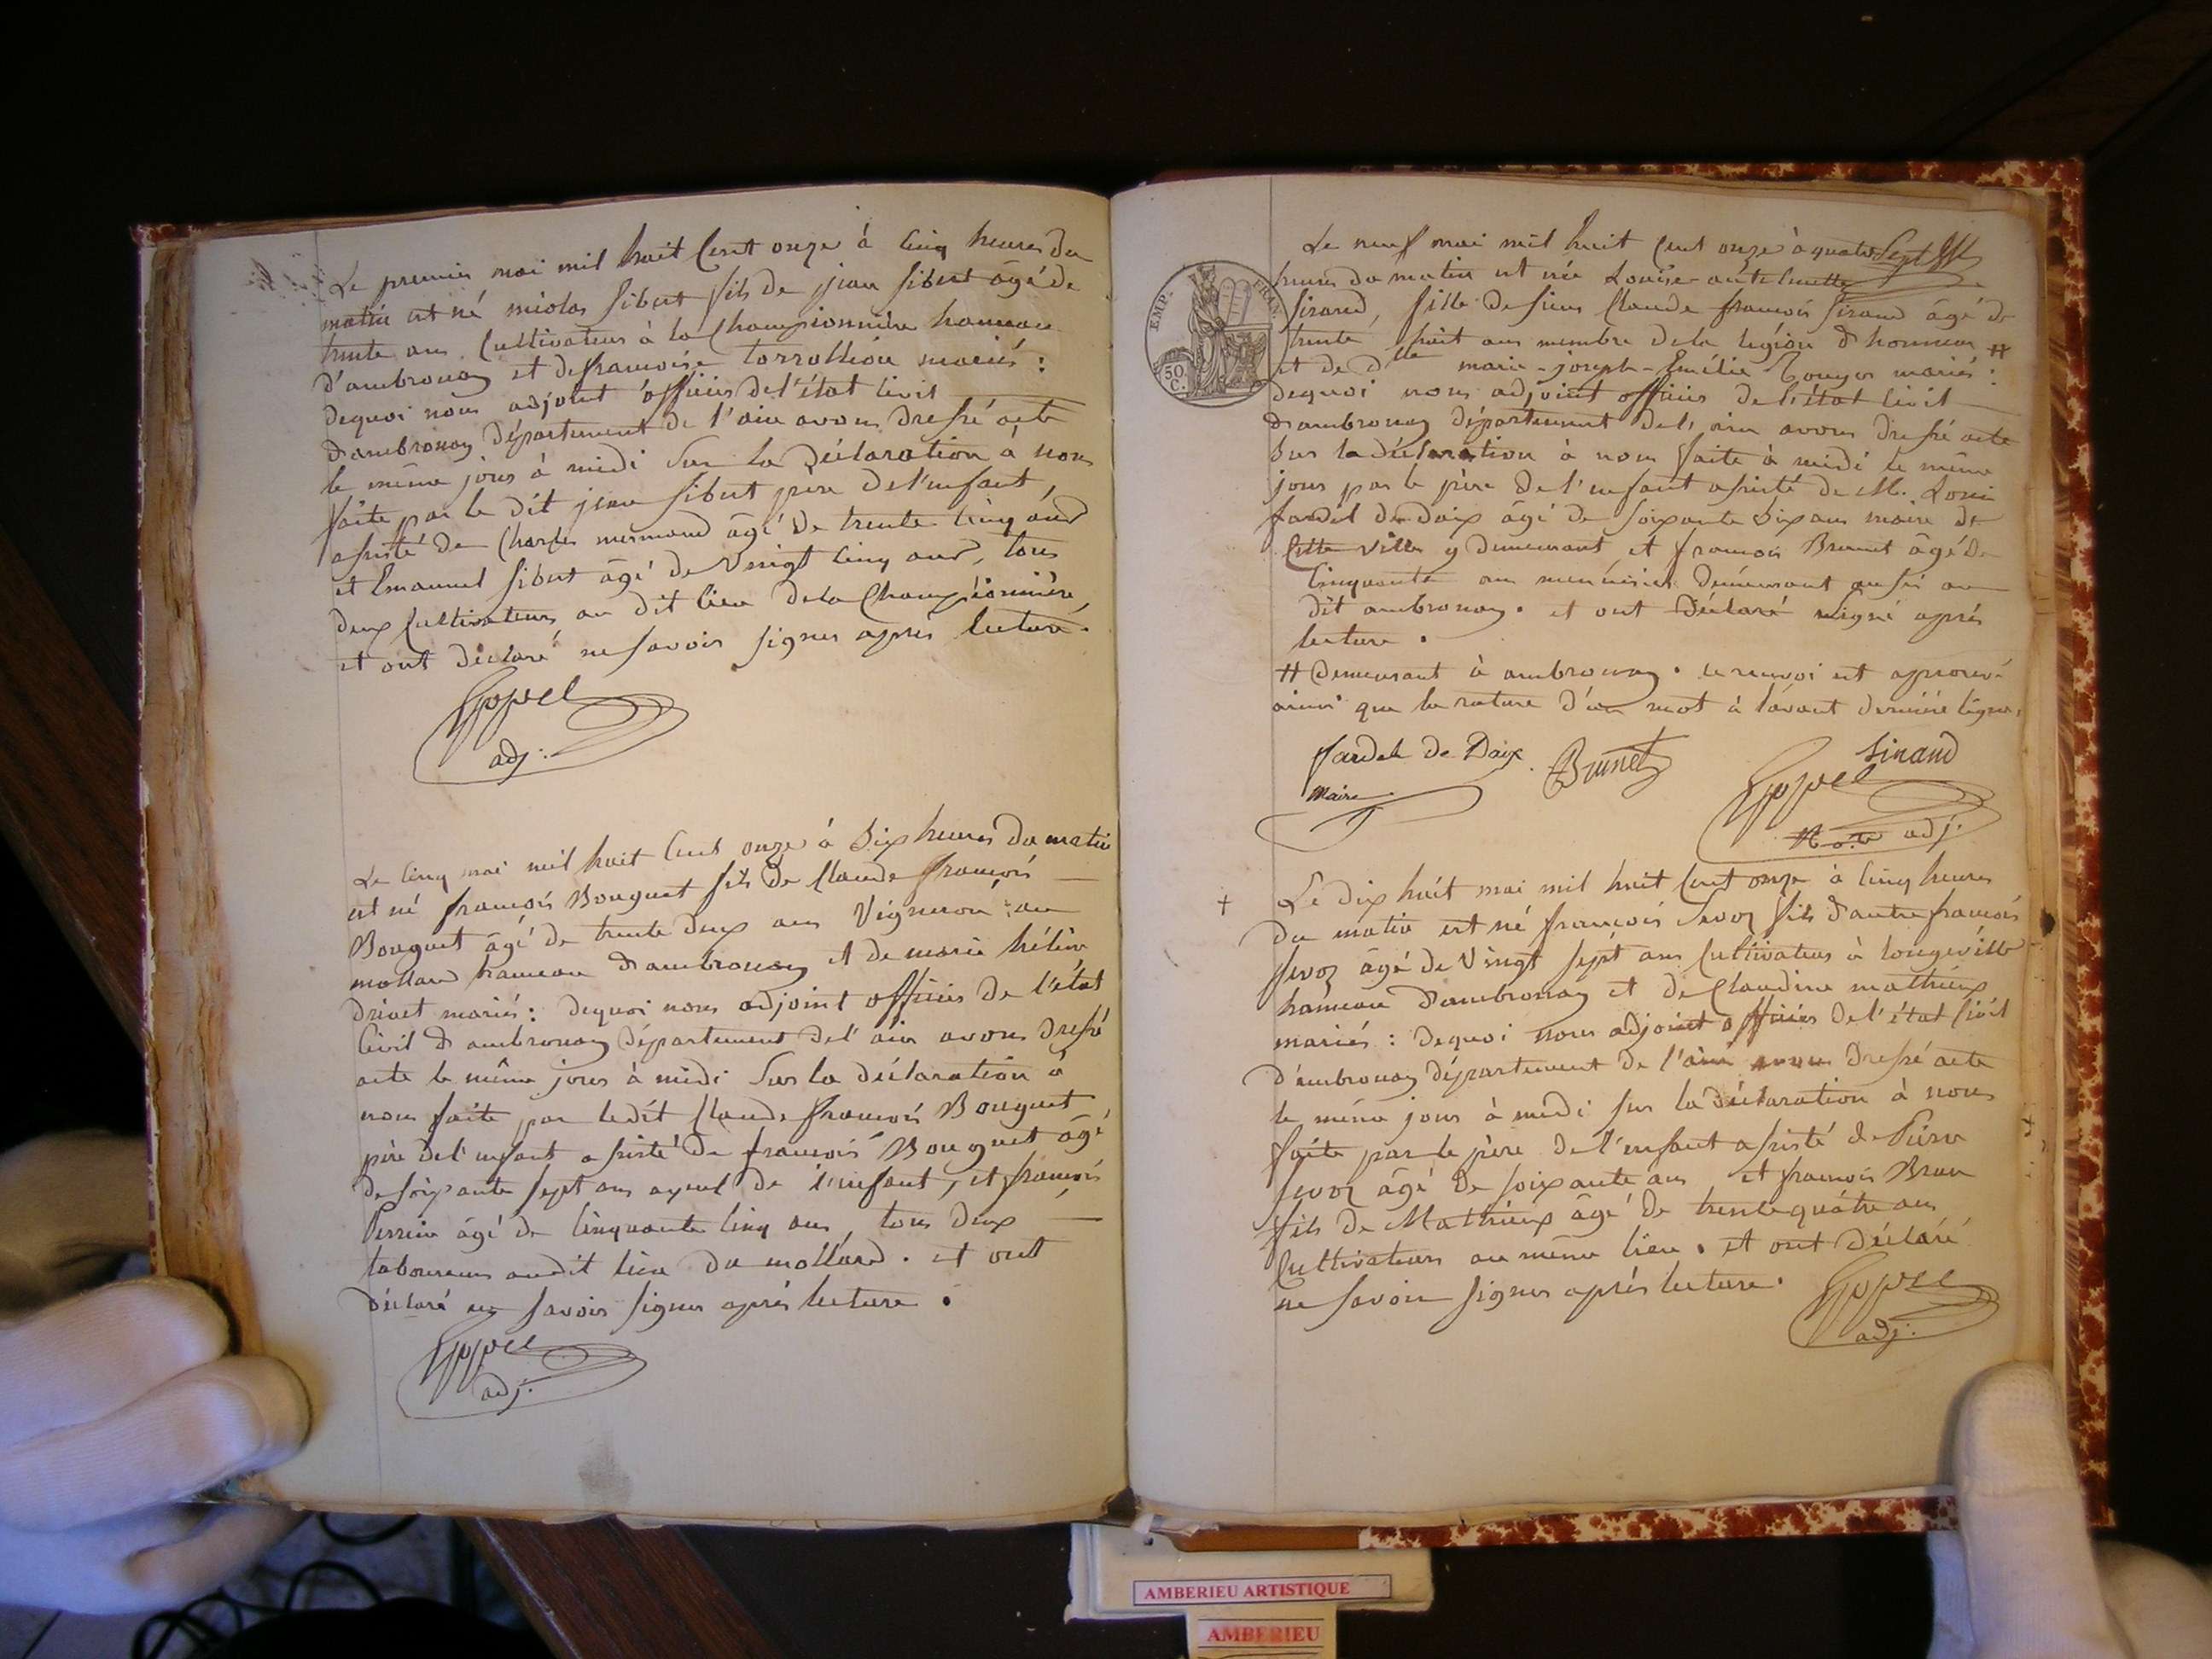 Le premier mai mil huit Cent onze à cinq heures du
matin est né nicolas Sibert fils de jean Sibert âgé de
trente ans Cultivateur à la Championnière hameau
d'ambronay et de françoise marièś:
dequoi nous adjoint officier de l'état Civil
d'ambronay département de l'ain avons dressé acte
le même jour à midi Sur la Déclaration à nous
faite par le dit jean Sibert père de l'enfant,
assisté de Charles mermand âgé de trente Cinq ans
et Emanuel Sibert âgé de Vingt Cinq ans, tous
deux Cultivateurs au dit lieu de la Championnière,
et ont déclaré ne savoir signer après lecture.
adj:
Le Cinq mai mil huit Cent onze à Dix heures du matin
est né françois Bouguet fils de Claude françois
Bouguet âgé de trente deux ans Vigneron au
mollard hameau d'ambronay et de marie hélène
mariés: dequoi nous adjoint officier de l'état
Civil d'ambronay département de l'ain avons dressé
acte le même jour à midi Sur la déclaration à
nous faite par le dit Claude françois Bouguet
père de l'enfant assisté de françois Bouguet âgé
de soixante sept ans ayeul de l'enfant, et françois
Perrin âgé de Cinquante Cinq ans, tous deux
laboureurs audit lieu du mollard. et ont
déclaré ne savoir signer après lecture.
adj:
Le neuf mai mil huit Cent onze à quatre
heures du matin est née Louise
Sirand, fille de sieur Claude françois Sirand âgé de
trente huit ans membre de la légion d'honneur #
et de dlle marie-joseph-Emélie mariés:
dequoi nous adjoint officier de l'état Civil
d'ambronay département de l'ain avons dressé acte
Sur la déclaration à nous faite à midi le même
jour par le père de l'enfant assisté de M. Louis
fardel de Daix âgé de soixante Dix ans maire de
Cette ville y demeurant et françois Brunet âgé de
Cinquante ans menuisier demeurant aussi au
dit ambronay. et ont déclaré signé après
lecture.
# demeurant à ambronay. le renvoi est approuvé
ainsi que la rature d'un mot à l'avant dernière ligne.
fardel de Daix Brunet Sirand
maire
adj:
+ Le dix huit mai mil huit Cent onze à Cinq heures
du matin est né françois Sevoz fils d'autre françois
Sevoz âgé de Vingt sept ans Cultivateur à longeville
hameau d'ambronay et de Claudine mathieux
mariés: dequoi nous adjoint officier de l'état Civil
d'ambronay département de l'ain avons dressé acte
le même jour à midi sur la déclaration à nous
faite par le père de l'enfant assisté de Pierre
Sevoz âgé de soixante ans et françois Brun
fils de Mathieux âgé de trente quatre ans
Cultivateurs au même lieu. et ont déclaré
ne savoir signer après lecture.
adj:
EMP. FRAN.
50
C.
AMBERIEU ARTISTIQUE
AMBERIEU